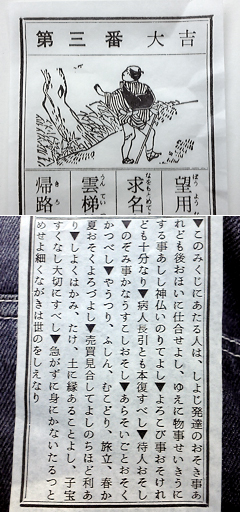 第三番 大吉
望用
ぼうよう
求名
なをもとめて
雲梯
うんてい
帰路
きろ
▼このみくじにあたる人は、しよじ発達のおそき事あ
れども後おほいに仕合せよし、ゆえに物事せいきうに
する事あしし神仏いのりてよし▼よろこび事おそけれ
ども十分なり▼病人長引とも本復すべし▼待人おそし
▼のぞみ事かなうすこしおそし▼あらそいごとおそく
かつべし▼やうつり、ふしん、むこどり、旅立、春か
夏おそくよろづよし▼売買見合してよしのちほど利あ
り▼しよくはかみ、たけ、土に縁あることよし、子宝
すくなし大切にすべし▼急がずに身にかないたるつと
めせよ細くながきは世のをしえなり